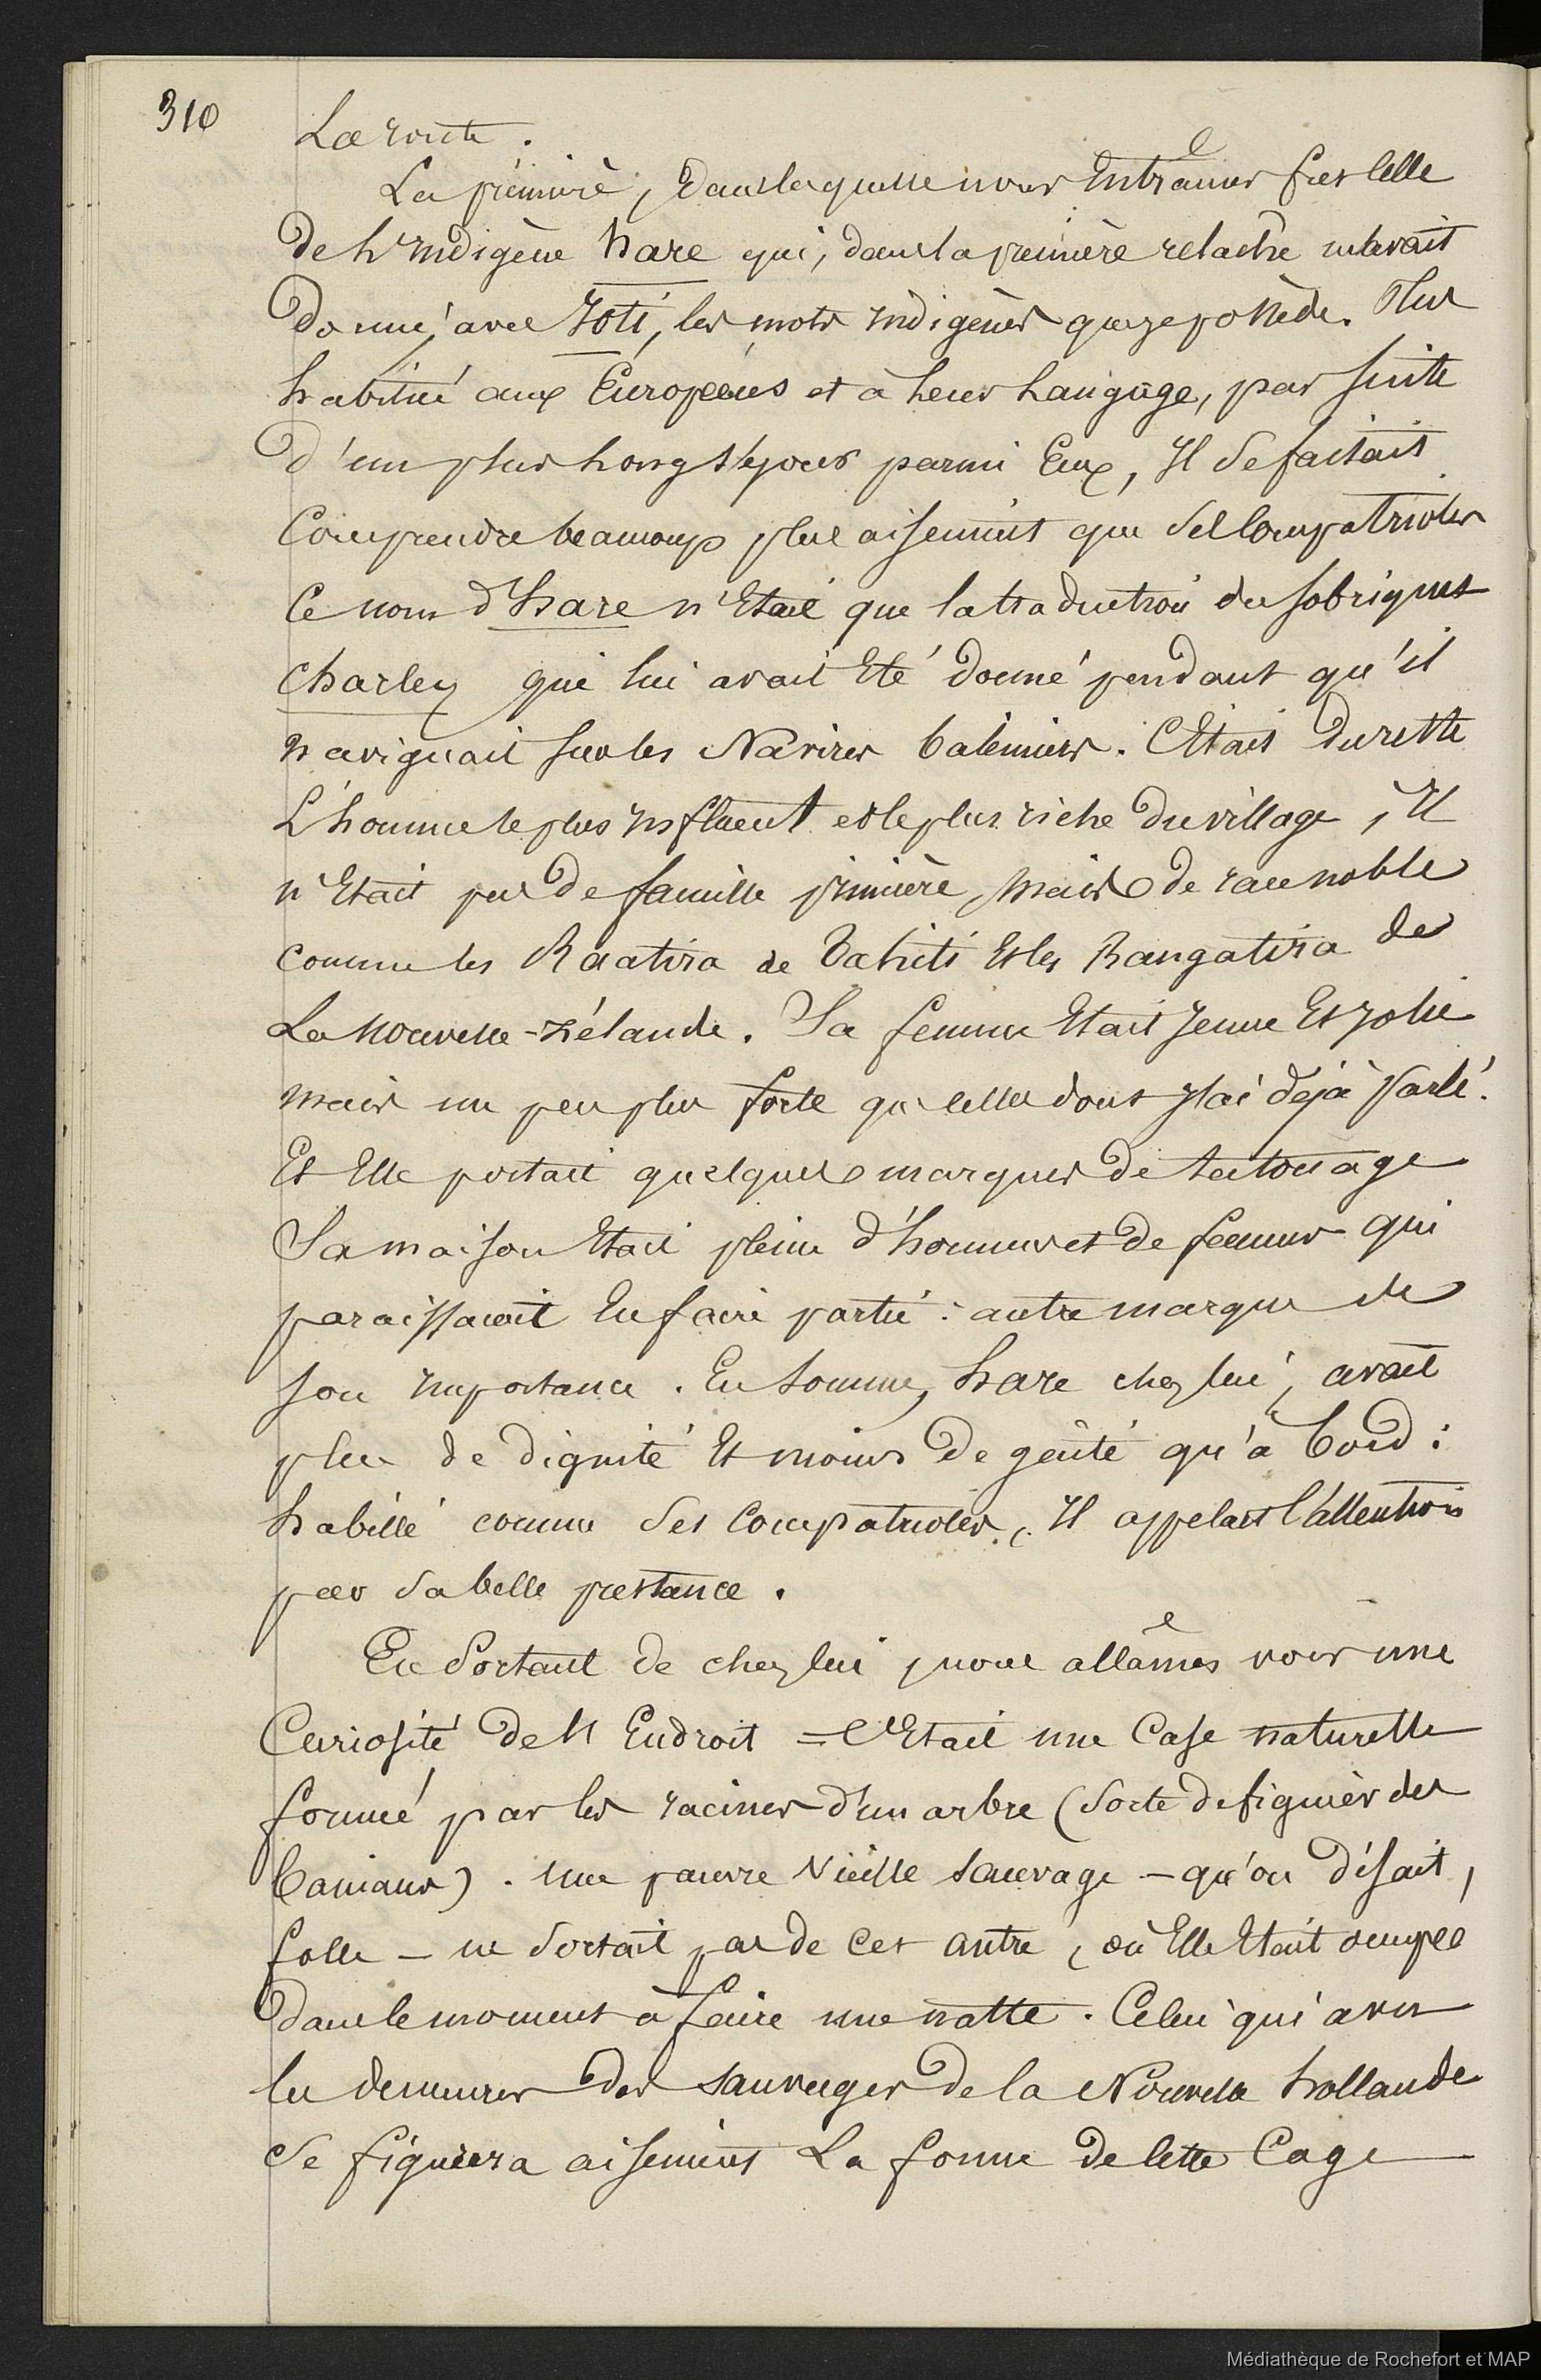 310
La route.
La première, dans laquelle nous Entrâmes fut Celle
de l'Indigène hare qui, dans la première relache m'avait
donné, avec Toti, les mots Indigènes que je possède. Plus
habitué aux Européens et à leur Langage, par suite
d'un plus Long séjour parmi Eux, Il se faisait
Comprendre beaucoup plus aisement que ses Compatriotes
Ce nom d'hare n'Etait que la traduction du sobriquet
Charley qui lui avait Eté donné pendant qu'il
naviguait sur les Navires baleiniers. C'Etait du reste
L'homme le plus Influent et le plus riche du village, Il
n'Etait pas de famille princière, mais de race noble
comme les Raatira de Tahiti Et les Rangatira de
La Nouvelle-Zélande. Sa femme Etait Jeune Et Jolie
mais un peu plus forte que celle dont J'ai déjà parlé.
Et Elle portait quelques marques de tatouage
Sa maison Etait pleine d'hommes et de femmes qui
paraissaient En faire partie : autre marque de
son Importance. En somme, hare chez lui, avait
plus de dignité Et moins de gaîté qu'à bord :
habillé comme ses Compatriotes, Il appelait l'attention
par sa belle prestance.
En Sortant de chez lui, nous allâmes voir une
Curiosité de l'Endroit = C'Etait une Case naturelle
formé par les racines d'un arbre (sorte de figuier des
banians). Une pauvre Vieille sauvage - qu'on disait,
folle - ne sortait pas de cet antre, où Elle Etait occupée
dans le moment à faire une natte. Celui qui a vu
les demeures des sauvages de la Nouvelle hollande
se figurera aisement La forme de Cette Cage
Médiathèque de Rochefort et MAP